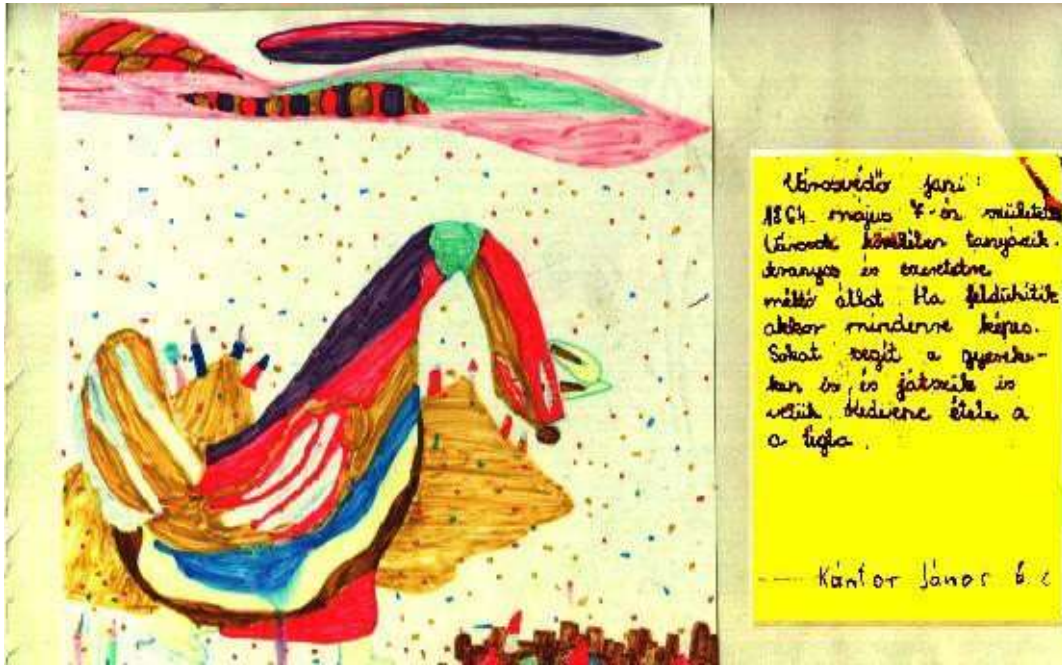 Városvédő jani:
1864. május 7-én született
Városok közelében tanyázik.
Aranyos és szeretetre
méltó állat. Ha feldühítik
akkor mindenre képes.
Sokat segít a gyereke-
ken is, és játszik is
velük. Kedvenc étele a
a tigla.
Kántor János 6.c